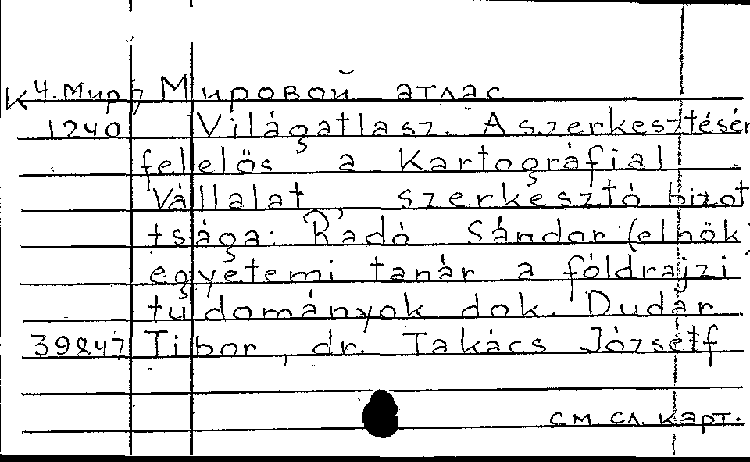 К 4. Мир, Мировой атлас
1240 Világatlasz. A szerkesztésér
felelös a Kartográfial
Vállalat, szerkesztó bizot
tsága: Radó Sándor (elnök)
egyetemi tanár a földrajzi
tudományok dok. Dudár
39847 Tibor, dr. Takács Józsétf
см. сл. карт.